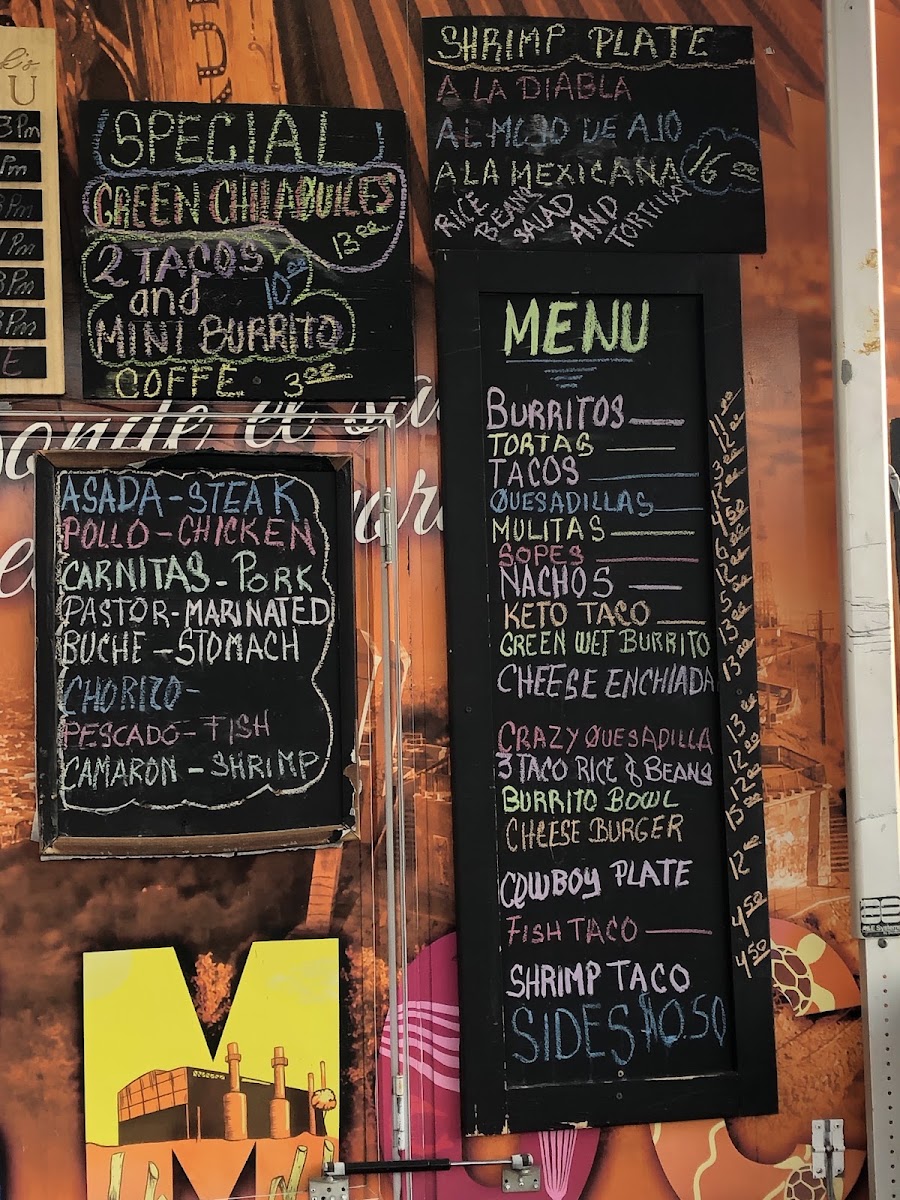 SPECIAL
GREEN CHILAQUILES
13.00
2 TACOS 10.00
and
MINI BURRITO
COFFE 3.00
SHRIMP PLATE
A LA DIABLA
AL MOJO DE AJO
A LA MEXICANA 16.00
RICE BEANS SALAD AND TORTILLA
ASADA-STEAK
POLLO-CHICKEN
CARNITAS-PORK
PASTOR-MARINATED
BUCHE-STOMACH
CHORIZO-
PESCADO-FISH
CAMARON-SHRIMP
MENU
BURRITOS 11.00
TORTAS 12.00
TACOS 3.00
QUESADILLAS 12.00
MULITAS 4.50
SOPES 6.00
NACHOS 12.00
KETO TACO 5.00
GREEN WET BURRITO 13.00
CHEESE ENCHIADA 13.00
CRAZY QUESADILLA 13.00
3 TACO RICE & BEANS 12.00
BURRITO BOWL 12.00
CHEESE BURGER 15.00
COWBOY PLATE 12.00
FISH TACO 4.50
SHRIMP TACO 4.50
SIDES $0.50
M